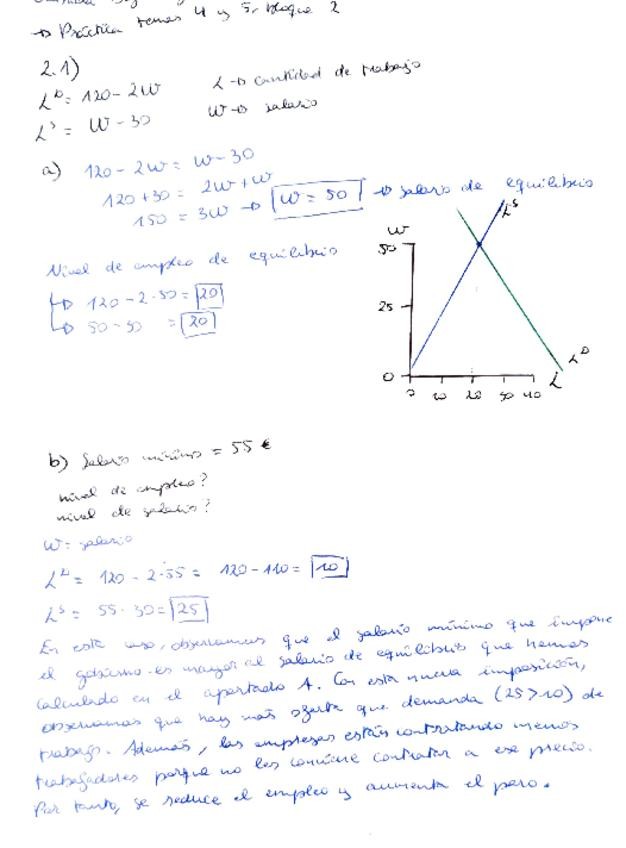 → Práctica temas 4 y 5, bloque 2
2.1)
L^D = 120 - 2W
L → cantidad de trabajo
L^S = W - 30
W → salario
a) 120 - 2W = W - 30
120 + 30 = 2W + W
150 = 3W → W = 50 → salario de equilibrio
Nivel de empleo de equilibrio
→ 120 - 2·50 = 20
→ 50 - 30 = 20
W
L^S
50
25
0
0 10 20 30 40
L
L^D
b) Salario mínimo = 55 €
nivel de empleo?
nivel de salario?
W = salario
L^D = 120 - 2·55 = 120 - 110 = 10
L^S = 55 - 30 = 25
En este caso, observamos que el salario mínimo que impone
el gobierno es mayor al salario de equilibrio que hemos
calculado en el apartado A. Con esta nueva imposición,
observamos que hay más oferta que demanda (25 > 10) de
trabajo. Además, las empresas están contratando menos
trabajadores porque no les conviene contratar a ese precio.
Por tanto, se reduce el empleo y aumenta el paro.